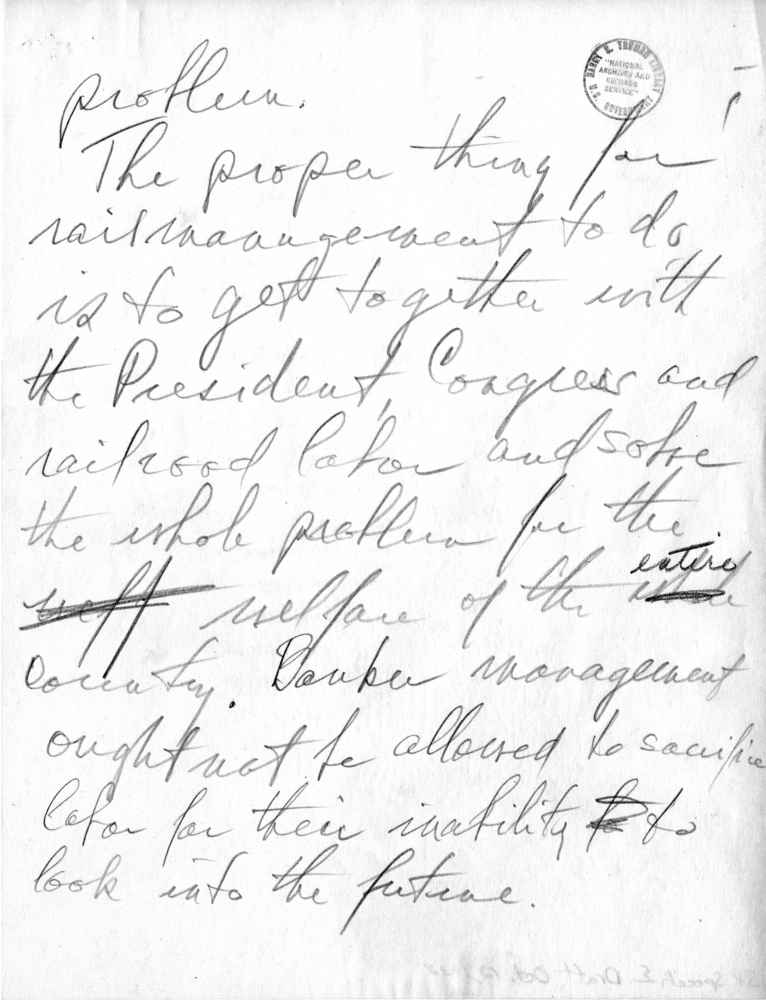 HARRY S. TRUMAN LIBRARY
"NATIONAL
ARCHIVES AND
RECORDS
SERVICE"
U.S. GOVERNMENT
problem.
The proper thing for
rail management to do
is to get together with
the President, Congress and
railroad labor and solve
the whole problem for the
entire
welf welfare of the
country. Banker management
ought not be allowed to sacrifice
labor for their inability to to
look into the future.